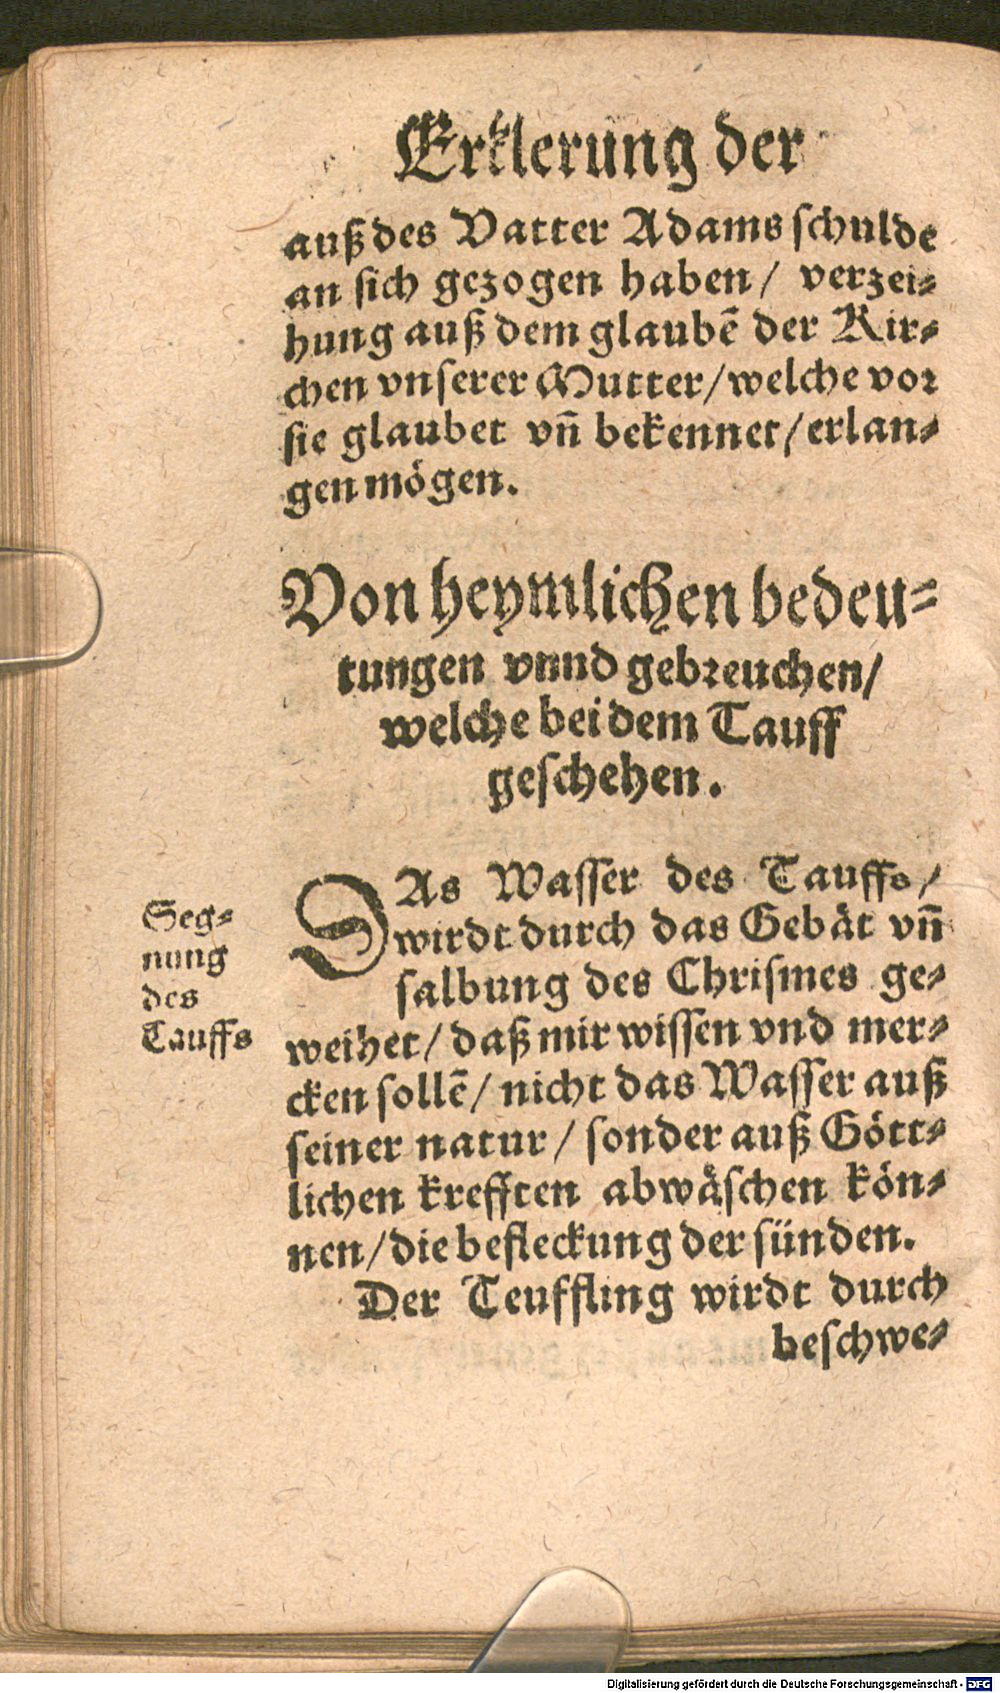 Erklerung der
auß des Vatter Adams schulde
an sich gezogen haben / verzei⸗
hung auß dem glaubẽ der Kir⸗
chen vnserer Mutter / welche vor
sie glaubet vñ bekennet / erlan⸗
gen mögen.
Von heymlichen bedeu⸗
tungen vnnd gebreuchen /
welche bei dem Tauff
geschehen.
Seg⸗
nung
des
Tauffs
DAs Wasser des Tauffs /
wirdt durch das Gebät vñ
salbung des Chrismes ge⸗
weihet / daß mir wissen vnd mer⸗
cken sollẽ / nicht das Wasser auß
seiner natur / sonder auß Gött⸗
lichen krefften abwäschen kön⸗
nen / die befleckung der sünden.
Der Teuffling wirdt durch
beschwe⸗
Digitalisierung gefördert durch die Deutsche Forschungsgemeinschaft - DFG